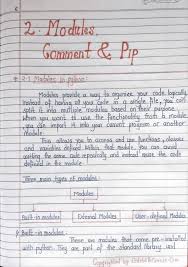 2. Modules,
Comment & Pip
* 2.1 Modules in python:
Modules provide a way to organize your code logically
instead of having all your code in a single file, you can
split it into multiple modules based on their purpose.
When you want to use the functionality from a module
you can import it into your current program or another
module.
This allows you to access and use functions, classes,
and variables defined within that module. You can avoid
writing the same code repeatedly and instead reuse the code
defined
Three main types of modules:
Modules
Built-in modules
External Modules
User-defined Modules
Built-in modules:
These are modules that come pre-installed
with python. They are part of the standard library and
Copyrighted by